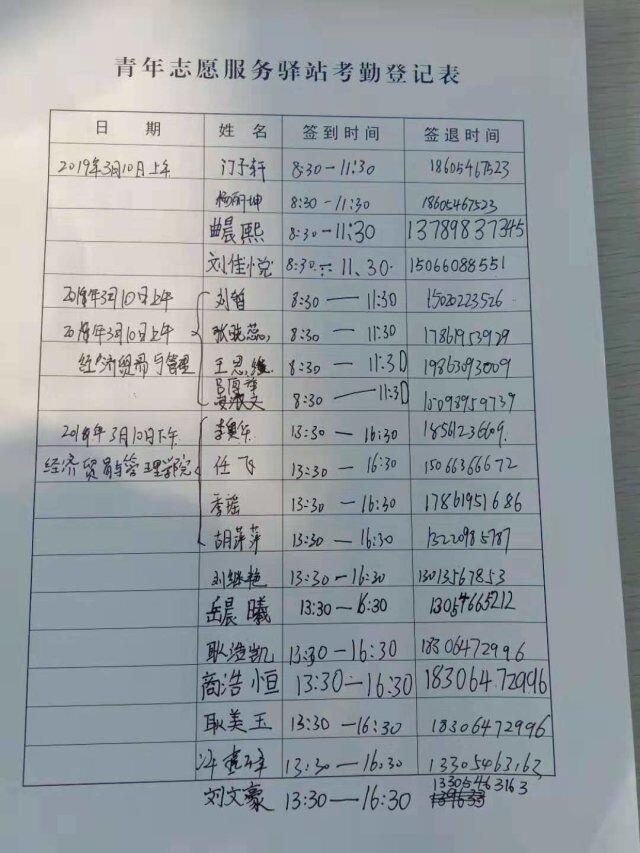 青年志愿服务驿站考勤登记表
日 期 姓 名 签到时间 签退时间
2019年3月10日上午 8:30-11:30 18605467523
杨丽坤 8:30-11:30 18605467523
曲晨熙 8:30-11:30 13789837345
刘佳悦 8:30-11.30. 15066088551
2019年3月10日上午 刘智 8:30-11:30 15020223526
2019年3月10日上午 8:30-11:30 17861953929
经济贸易与管理 8:30-11:30 19863093009
8:30-11:30
2019年3月10日下午 13:30-16:30 18561236609.
经济贸易与管理学院 任飞 13:30-16:30 15066366672
秀瑶 13:30-16:30 17861951686
胡萍萍 13:30-16:30 13220985787
刘继艳 13:30-16:30 13013567853
岳晨曦 13:30-16:30 13054665212
耿浩凯 13:30-16:30 18306472996
商浩恒 13:30-16:30 18306472996
耿美玉 13:30-16:30 18306472996
13:30-16:30 13305463163
刘文豪 13:30-16:30 13305463163